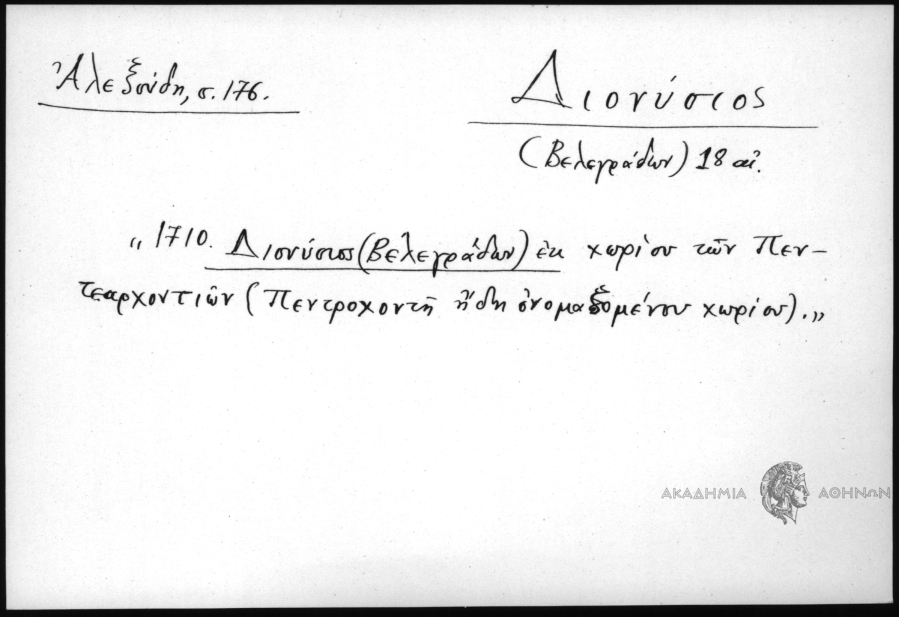 Ἀλεξούδη, σ. 176.
Διονύσιος
(Βελεγράδων) 18 αἰ.
„ 1710. Διονύσιος (Βελεγράδων) ἐκ χωρίου τῶν Πεν-
τεαρχοντιῶν (Πεντροχοντῆ ἤδη ὀνομαζομένου χωρίου).„
ΑΚΑΔΗΜΙΑ ΑΘΗΝΩΝ